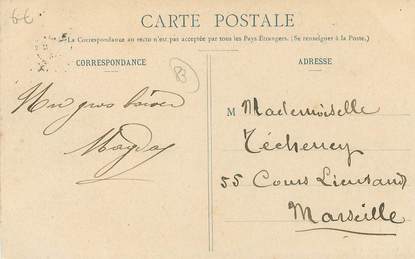 66
CARTE POSTALE
La Correspondance au recto n'est pas acceptée par tous les Pays Étrangers. (Se renseigner à la Poste.)
CORRESPONDANCE
ADRESSE
Un gros baiser
Magda
M Mademoiselle
Técheney
55 Cours Lieutaud
Marseille